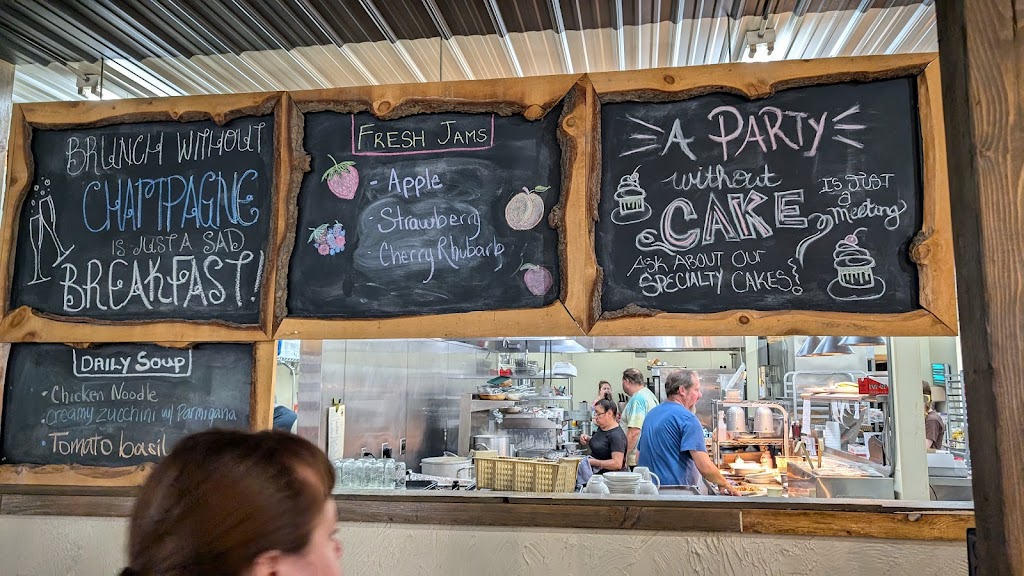 BRUNCH WITHOUT
CHAMPAGNE
IS JUST A SAD
BREAKFAST!
FRESH JAMS
- Apple
- Strawberry
- Cherry Rhubarb
A PARTY
without
CAKE
IS JUST
a
meeting
ASK ABOUT OUR
SPECIALTY CAKES!
DAILY SOUP
• Chicken Noodle
• creamy zucchini w/ Parmigana
• Tomato basil